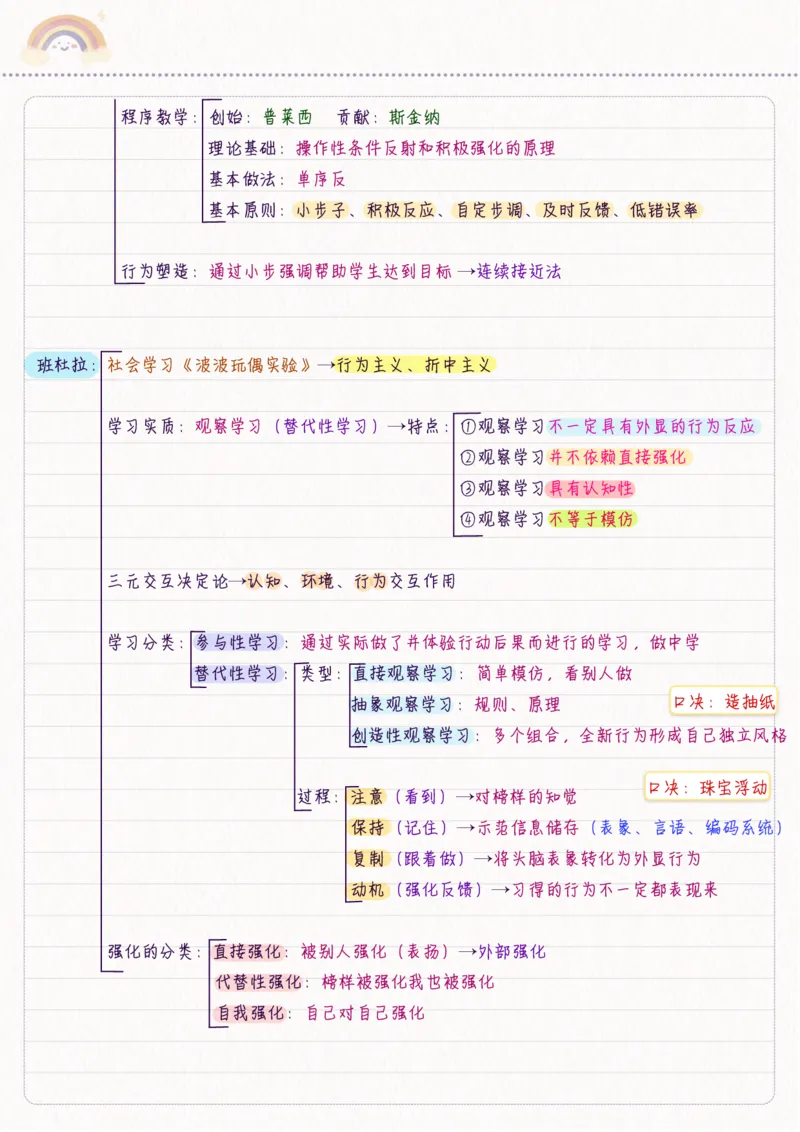 程序教学：创始：普莱西 贡献：斯金纳
理论基础：操作性条件反射和积极强化的原理
基本做法：单序反
基本原则：小步子、积极反应、自定步调、及时反馈、低错误率
行为塑造：通过小步强调帮助学生达到目标→连续接近法
班杜拉：社会学习《波波玩偶实验》→行为主义、折中主义
学习实质：观察学习（替代性学习）→特点：①观察学习不一定具有外显的行为反应
②观察学习并不依赖直接强化
③观察学习具有认知性
④观察学习不等于模仿
三元交互决定论→认知、环境、行为交互作用
学习分类：参与性学习：通过实际做了并体验行动后果而进行的学习，做中学
替代性学习：类型：直接观察学习：简单模仿，看别人做
抽象观察学习：规则、原理
口决：造抽纸
创造性观察学习：多个组合，全新行为形成自己独立风格
口决：珠宝浮动
过程：注意（看到）→对榜样的知觉
保持（记住）→示范信息储存（表象、言语、编码系统）
复制（跟着做）→将头脑表象转化为外显行为
动机（强化反馈）→习得的行为不一定都表现来
强化的分类：直接强化：被别人强化（表扬）→外部强化
代替性强化：榜样被强化我也被强化
自我强化：自己对自己强化